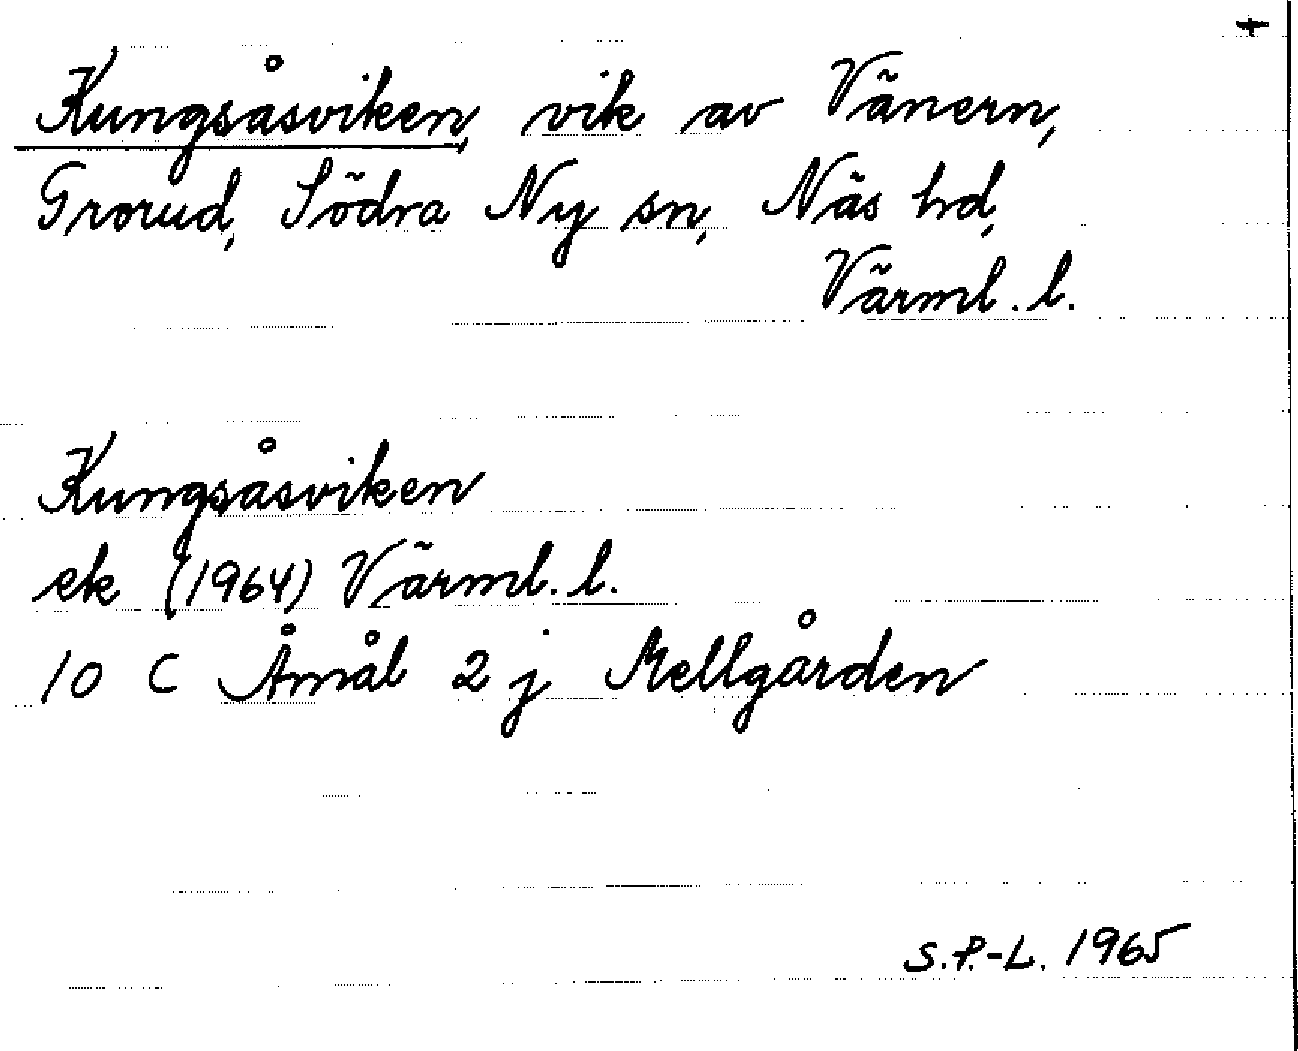 +
Kungsåsviken, vik av Vänern,
Grorud, Södra Ny sn, Näs hd,
Värml. l.
Kungsåsviken
ek (1964) Värml. l.
10 C Åmål 2 j Mellgården
S.P.-L. 1965